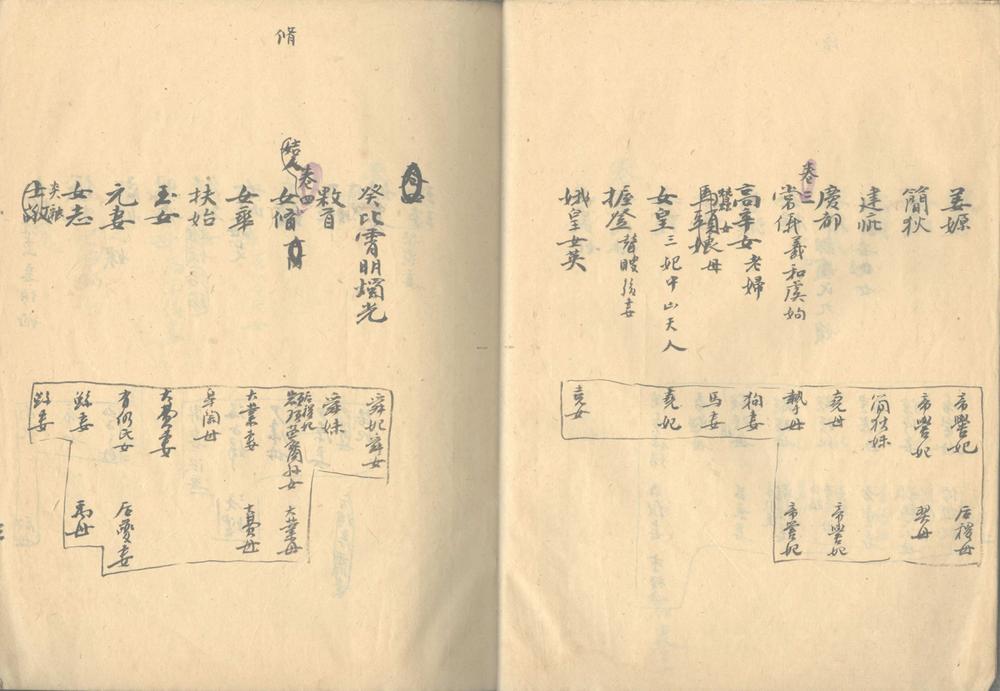 姜嫄
簡狄
建疵
慶都
卷三
常儀羲和虞姁
高辛女老婦
蠶女
馬頭娘母
女皇三妃中山天人
握登瞽瞍後妻
娥皇女英
帝嚳妃
后稷母
帝嚳妃
契母
簡狄妹
堯母
帝嚳妃
摯母
帝嚳妃
狗妻
馬妻
堯妃
堯女
脩
癸比霄明燭光
敤首
卷四
女脩
女華
扶始
玉女
元妻
女志
舜妃舜女
舜妹
大業母
大業妻
大費母
皋陶母
大費妻
有仍氏女
后夔妻
鯀妻
禹母
鯀妻